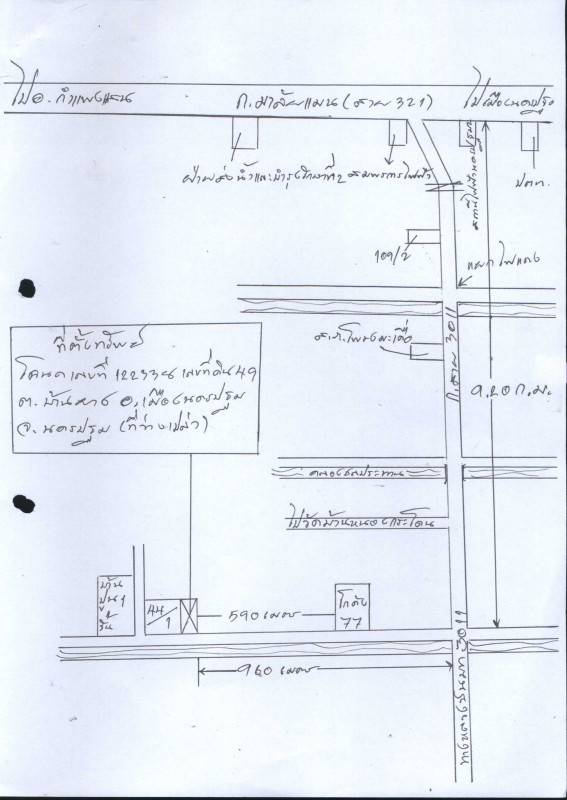 ไป อ. กำแพงแสน
ถ. มาลัยแมน (สาย 321)
ไปเมืองนครปฐม
ฝ่ายส่งน้ำและบำรุงรักษาที่ 2
สถานีไฟฟ้านครปฐม
ปตท.
109/2
แยกไฟแดง
ส.ภ. โพรงมะเดื่อ
ถ. สาย 3011
9.20 ก.ม.
ที่ตั้งทรัพย์
โฉนดเลขที่ 122335 เลขที่ดิน 49
ต. บ้านยาง อ. เมืองนครปฐม
จ. นครปฐม (ที่ว่างเปล่า)
คลองชลประทาน
ไปวัดบ้านหนองกระโดน
บ้าน
ปูน 1
ชั้น
44/1
590 เมตร
โกดัง
77
960 เมตร
ทางหลวงชนบท 3011